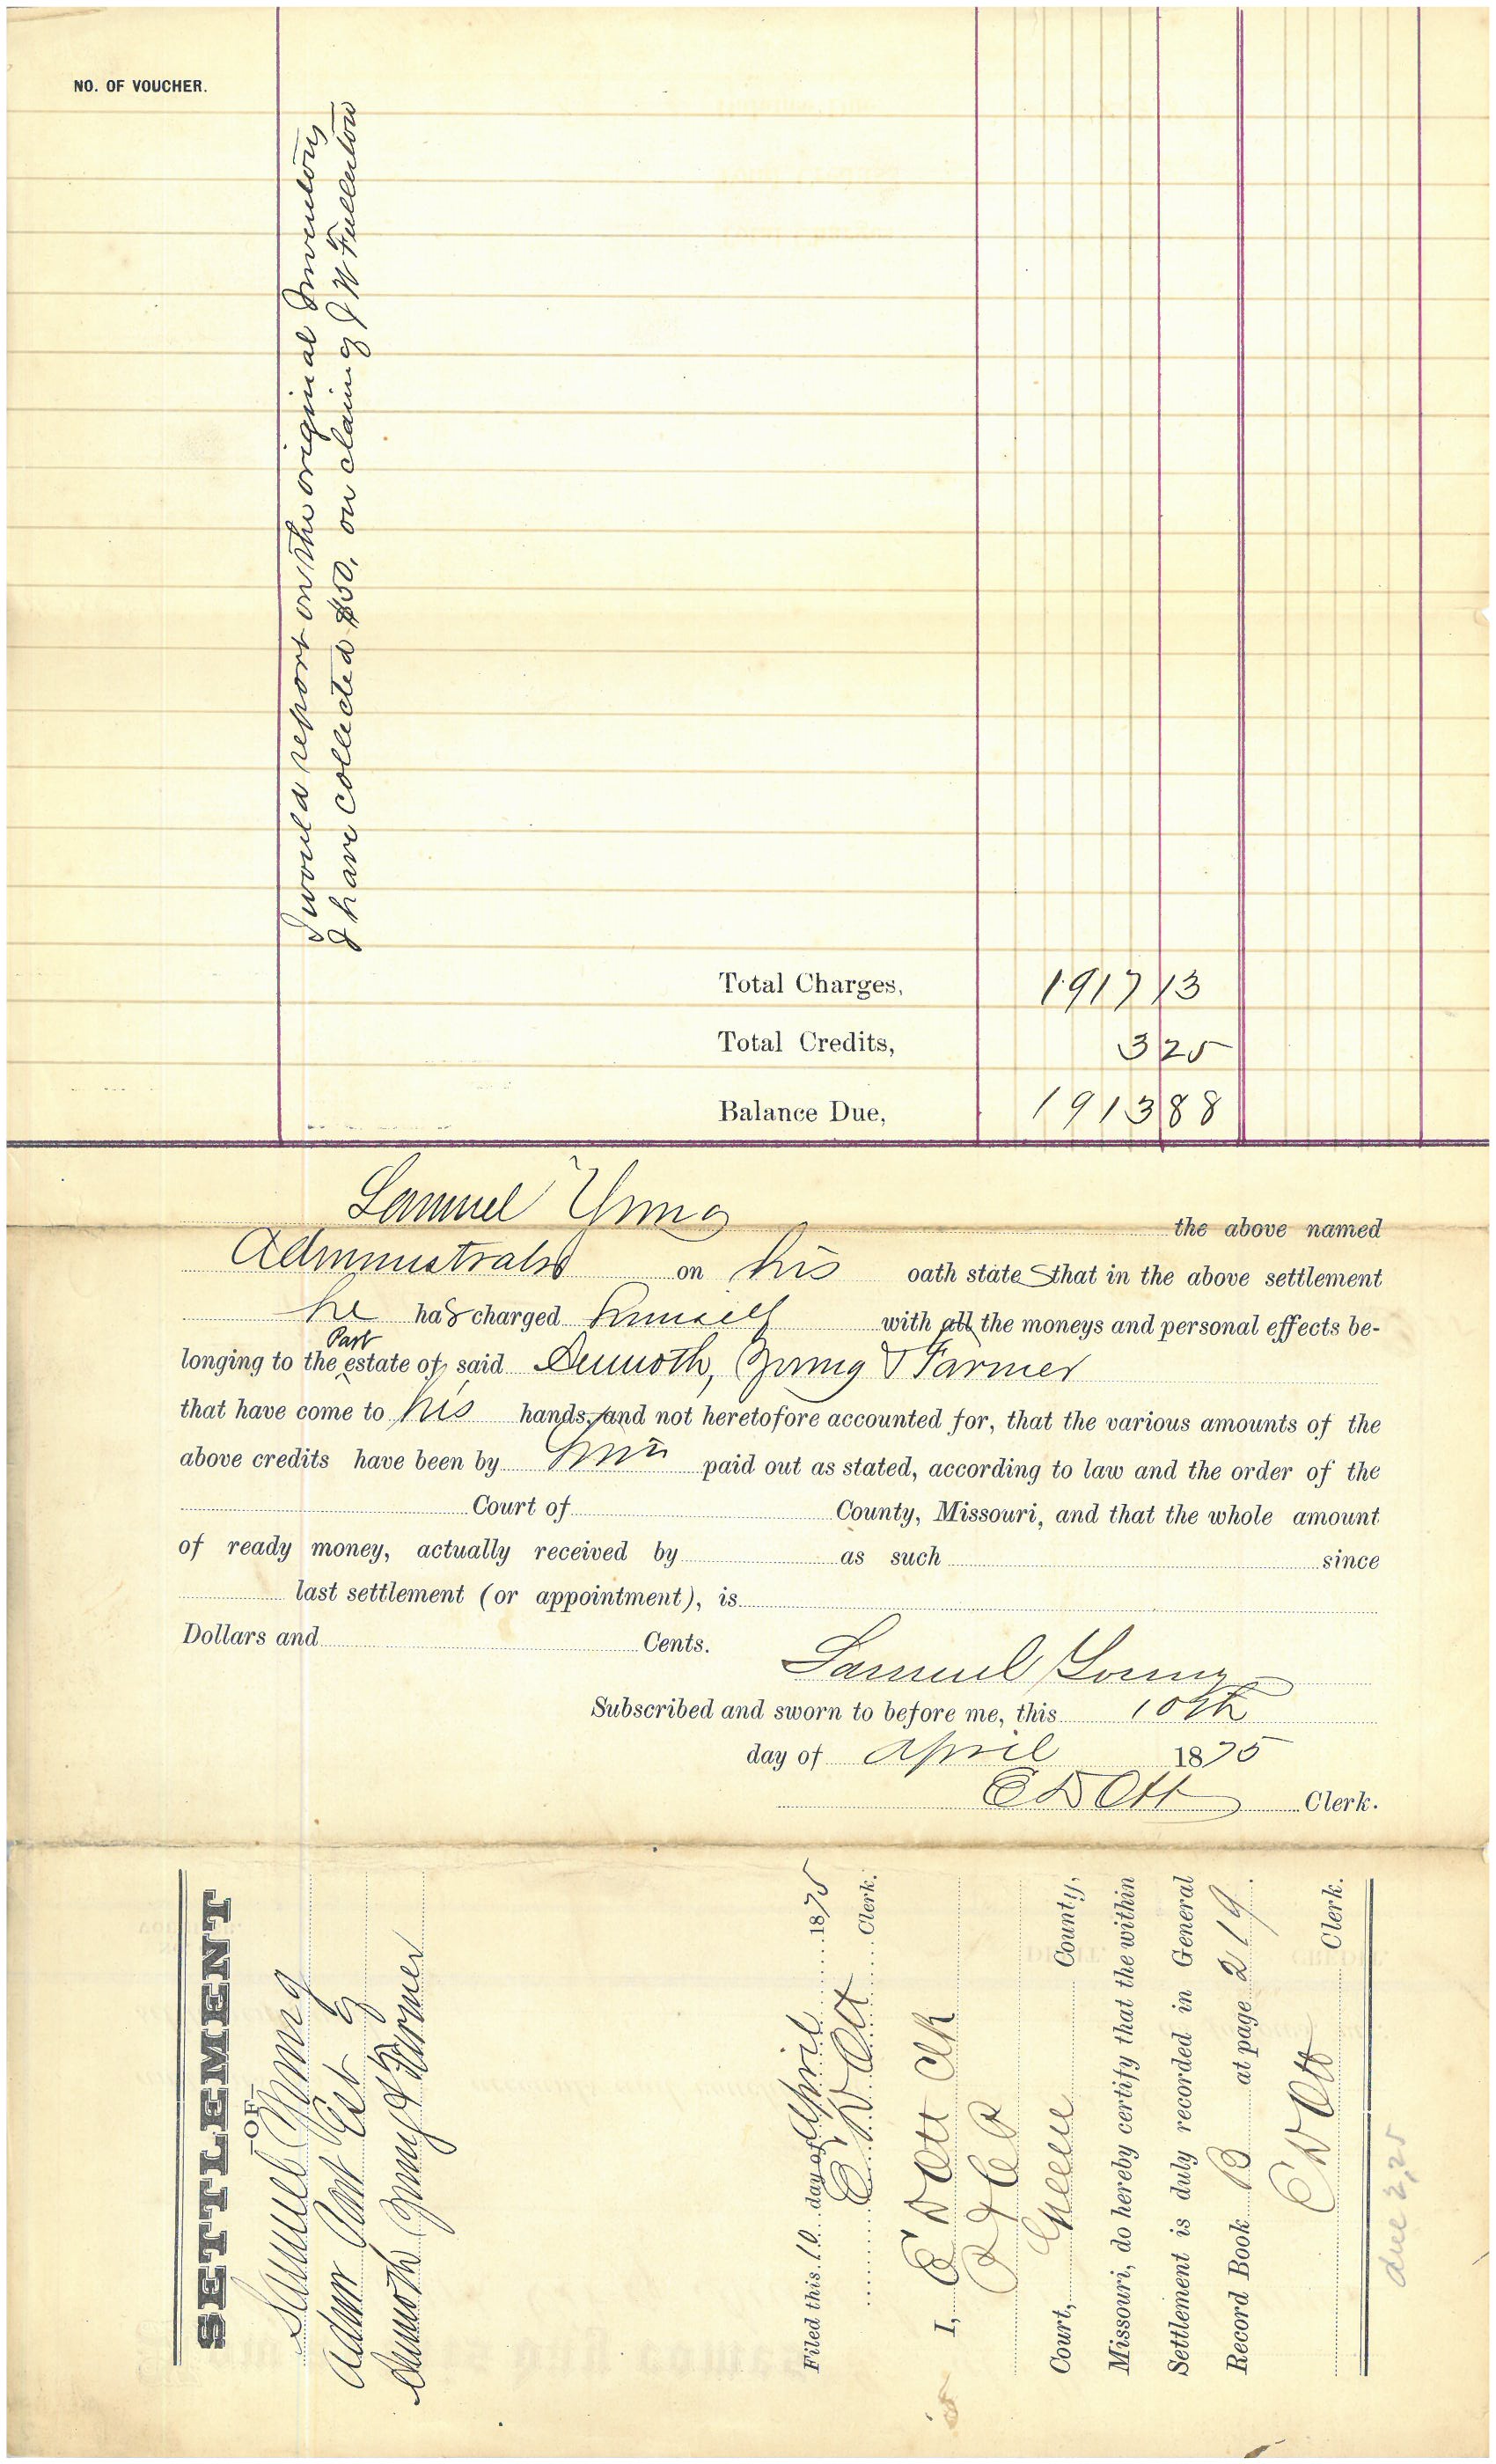 NO. OF VOUCHER.
I would report on the original Inventory
I have collected $50, on claim of J W Fullerton
Total Charges, 1917 13
Total Credits, 3 25
Balance Due, 1913 88
Samuel Young the above named
Administrator on his oath state that in the above settlement
he has charged himself with all the moneys and personal effects be-
Part
longing to the estate of said Demoth, Young & Farmer
that have come to his hands, and not heretofore accounted for, that the various amounts of the
above credits have been by him paid out as stated, according to law and the order of the
Court of County, Missouri, and that the whole amount
of ready money, actually received by as such since
last settlement (or appointment), is
Dollars and Cents.
Samuel Young
Subscribed and sworn to before me, this 10th
day of April 1875
E D Ott Clerk.
SETTLEMENT
OF
Samuel Young
Admr Part Est of
Demoth Young & Farmer
Filed this 10 day of April 1875
E D Ott Clerk.
I, E D Ott Clk
Court, Greene County,
Missouri, do hereby certify that the within
Settlement is duly recorded in General
Record Book B at page 219.
E D Ott Clerk.
due 3,25